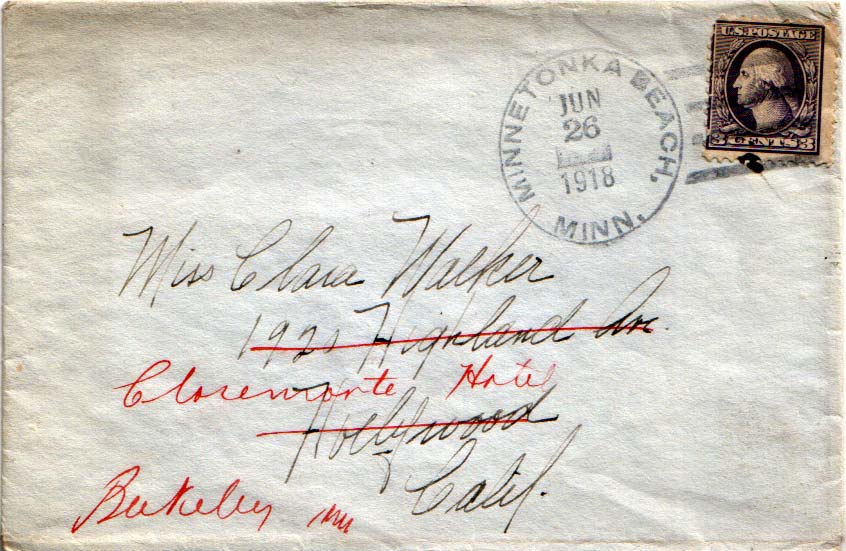 U.S. POSTAGE
3 CENTS 3
MINNETONKA BEACH,
JUN
26
1918
MINN.
Miss Clara Walker
1921 Highland Av.
Claremonte Hotel
Hollywood
Calif.
Berkeley